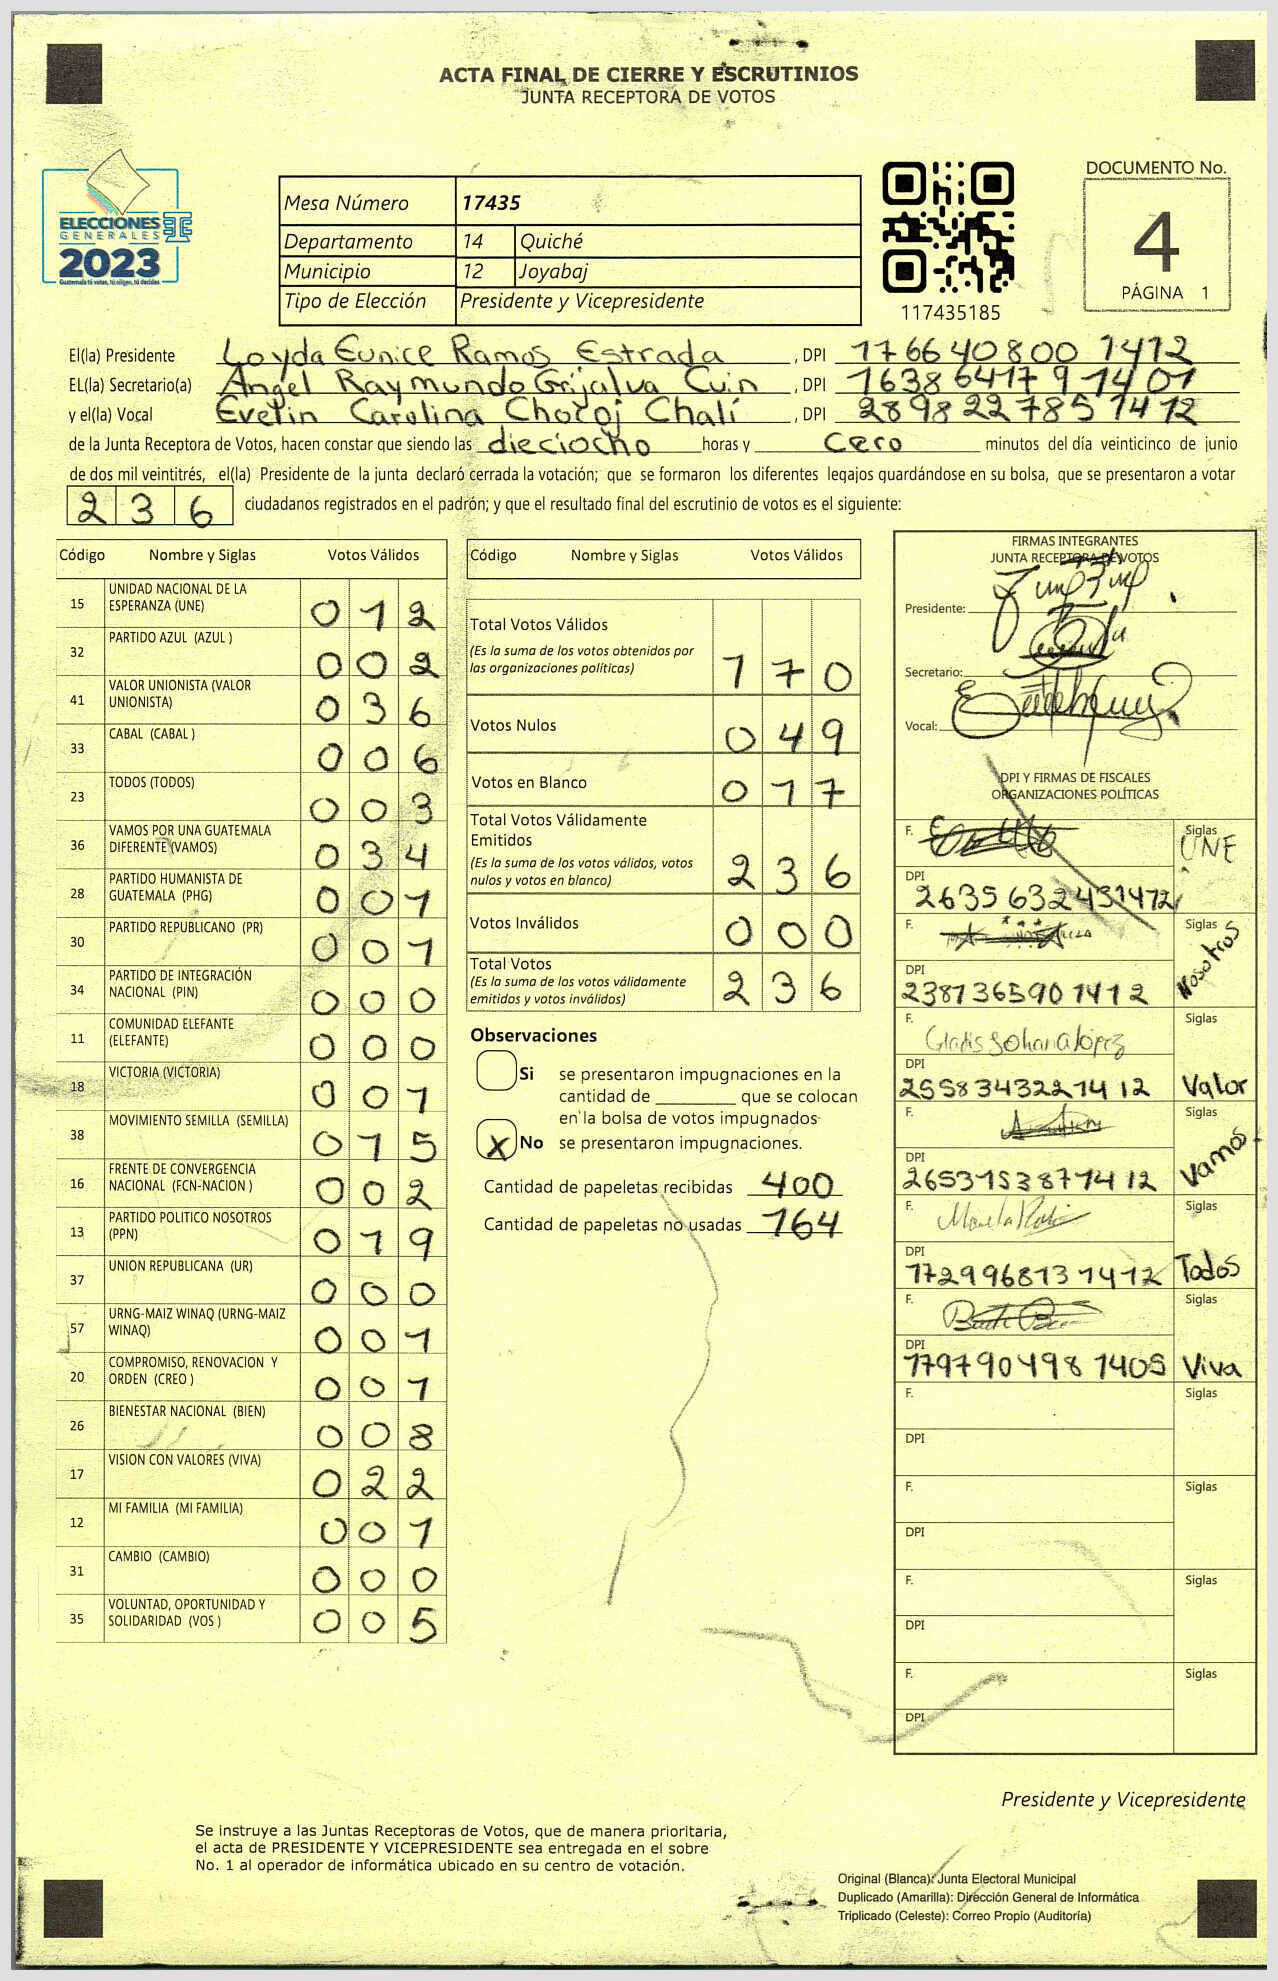 ACTA FINAL DE CIERRE Y ESCRUTINIOS
JUNTA RECEPTORA DE VOTOS
ELECCIONES
GENERALES
2023
Guatemala tú votas, tú eliges, tú decides
Mesa Número 17435
Departamento 14 Quiché
Municipio 12 Joyabaj
Tipo de Elección Presidente y Vicepresidente
117435185
DOCUMENTO No.
4
PÁGINA 1
El(la) Presidente Loyda Eunice Ramos Estrada, DPI 176640800 1412
EL(la) Secretario(a) Angel Raymundo Grijalva Cuin, DPI 163864179 1401
y el(la) Vocal Evelin Carolina Chocoj Chalí, DPI 289822785 1412
de la Junta Receptora de Votos, hacen constar que siendo las dieciocho horas y cero minutos del día veinticinco de junio
de dos mil veintitrés, el(la) Presidente de la junta declaró cerrada la votación; que se formaron los diferentes legajos quardándose en su bolsa, que se presentaron a votar
236 ciudadanos registrados en el padrón; y que el resultado final del escrutinio de votos es el siguiente:
Código Nombre y Siglas Votos Válidos
15 UNIDAD NACIONAL DE LA ESPERANZA (UNE) 012
32 PARTIDO AZUL (AZUL ) 002
41 VALOR UNIONISTA (VALOR UNIONISTA) 036
33 CABAL (CABAL ) 006
23 TODOS (TODOS) 003
36 VAMOS POR UNA GUATEMALA DIFERENTE (VAMOS) 034
28 PARTIDO HUMANISTA DE GUATEMALA (PHG) 001
30 PARTIDO REPUBLICANO (PR) 001
34 PARTIDO DE INTEGRACIÓN NACIONAL (PIN) 000
11 COMUNIDAD ELEFANTE (ELEFANTE) 000
18 VICTORIA (VICTORIA) 001
38 MOVIMIENTO SEMILLA (SEMILLA) 015
16 FRENTE DE CONVERGENCIA NACIONAL (FCN-NACION ) 002
13 PARTIDO POLITICO NOSOTROS (PPN) 019
37 UNION REPUBLICANA (UR) 000
57 URNG-MAIZ WINAQ (URNG-MAIZ WINAQ) 001
20 COMPROMISO, RENOVACION Y ORDEN (CREO ) 001
26 BIENESTAR NACIONAL (BIEN) 008
17 VISION CON VALORES (VIVA) 022
12 MI FAMILIA (MI FAMILIA) 001
31 CAMBIO (CAMBIO) 000
35 VOLUNTAD, OPORTUNIDAD Y SOLIDARIDAD (VOS ) 005
Código Nombre y Siglas Votos Válidos
Total Votos Válidos
(Es la suma de los votos obtenidos por las organizaciones políticas) 170
Votos Nulos 049
Votos en Blanco 017
Total Votos Válidamente Emitidos
(Es la suma de los votos válidos, votos nulos y votos en blanco) 236
Votos Inválidos 000
Total Votos
(Es la suma de los votos válidamente emitidos y votos inválidos) 236
Observaciones
Si se presentaron impugnaciones en la
cantidad de ________ que se colocan
en la bolsa de votos impugnados
X No se presentaron impugnaciones.
Cantidad de papeletas recibidas 400
Cantidad de papeletas no usadas 164
FIRMAS INTEGRANTES
JUNTA RECEPTORA DE VOTOS
Presidente:
Secretario:
Vocal:
DPI Y FIRMAS DE FISCALES
ORGANIZACIONES POLÍTICAS
F. Siglas UNE
DPI 2635 63243 1412
F. Siglas Nosotros
DPI 238136590 1412
F. Gladis Johana López Siglas Valor
DPI 255834322 1412
F. Siglas Vamos
DPI 265315387 1412
F. Siglas Todos
DPI 172996813 1412
F. Siglas Viva
DPI 179790498 1405
F. Siglas
DPI
F. Siglas
DPI
F. Siglas
DPI
F. Siglas
DPI
Presidente y Vicepresidente
Se instruye a las Juntas Receptoras de Votos, que de manera prioritaria,
el acta de PRESIDENTE Y VICEPRESIDENTE sea entregada en el sobre
No. 1 al operador de informática ubicado en su centro de votación.
Original (Blanca): Junta Electoral Municipal
Duplicado (Amarilla): Dirección General de Informática
Triplicado (Celeste): Correo Propio (Auditoría)